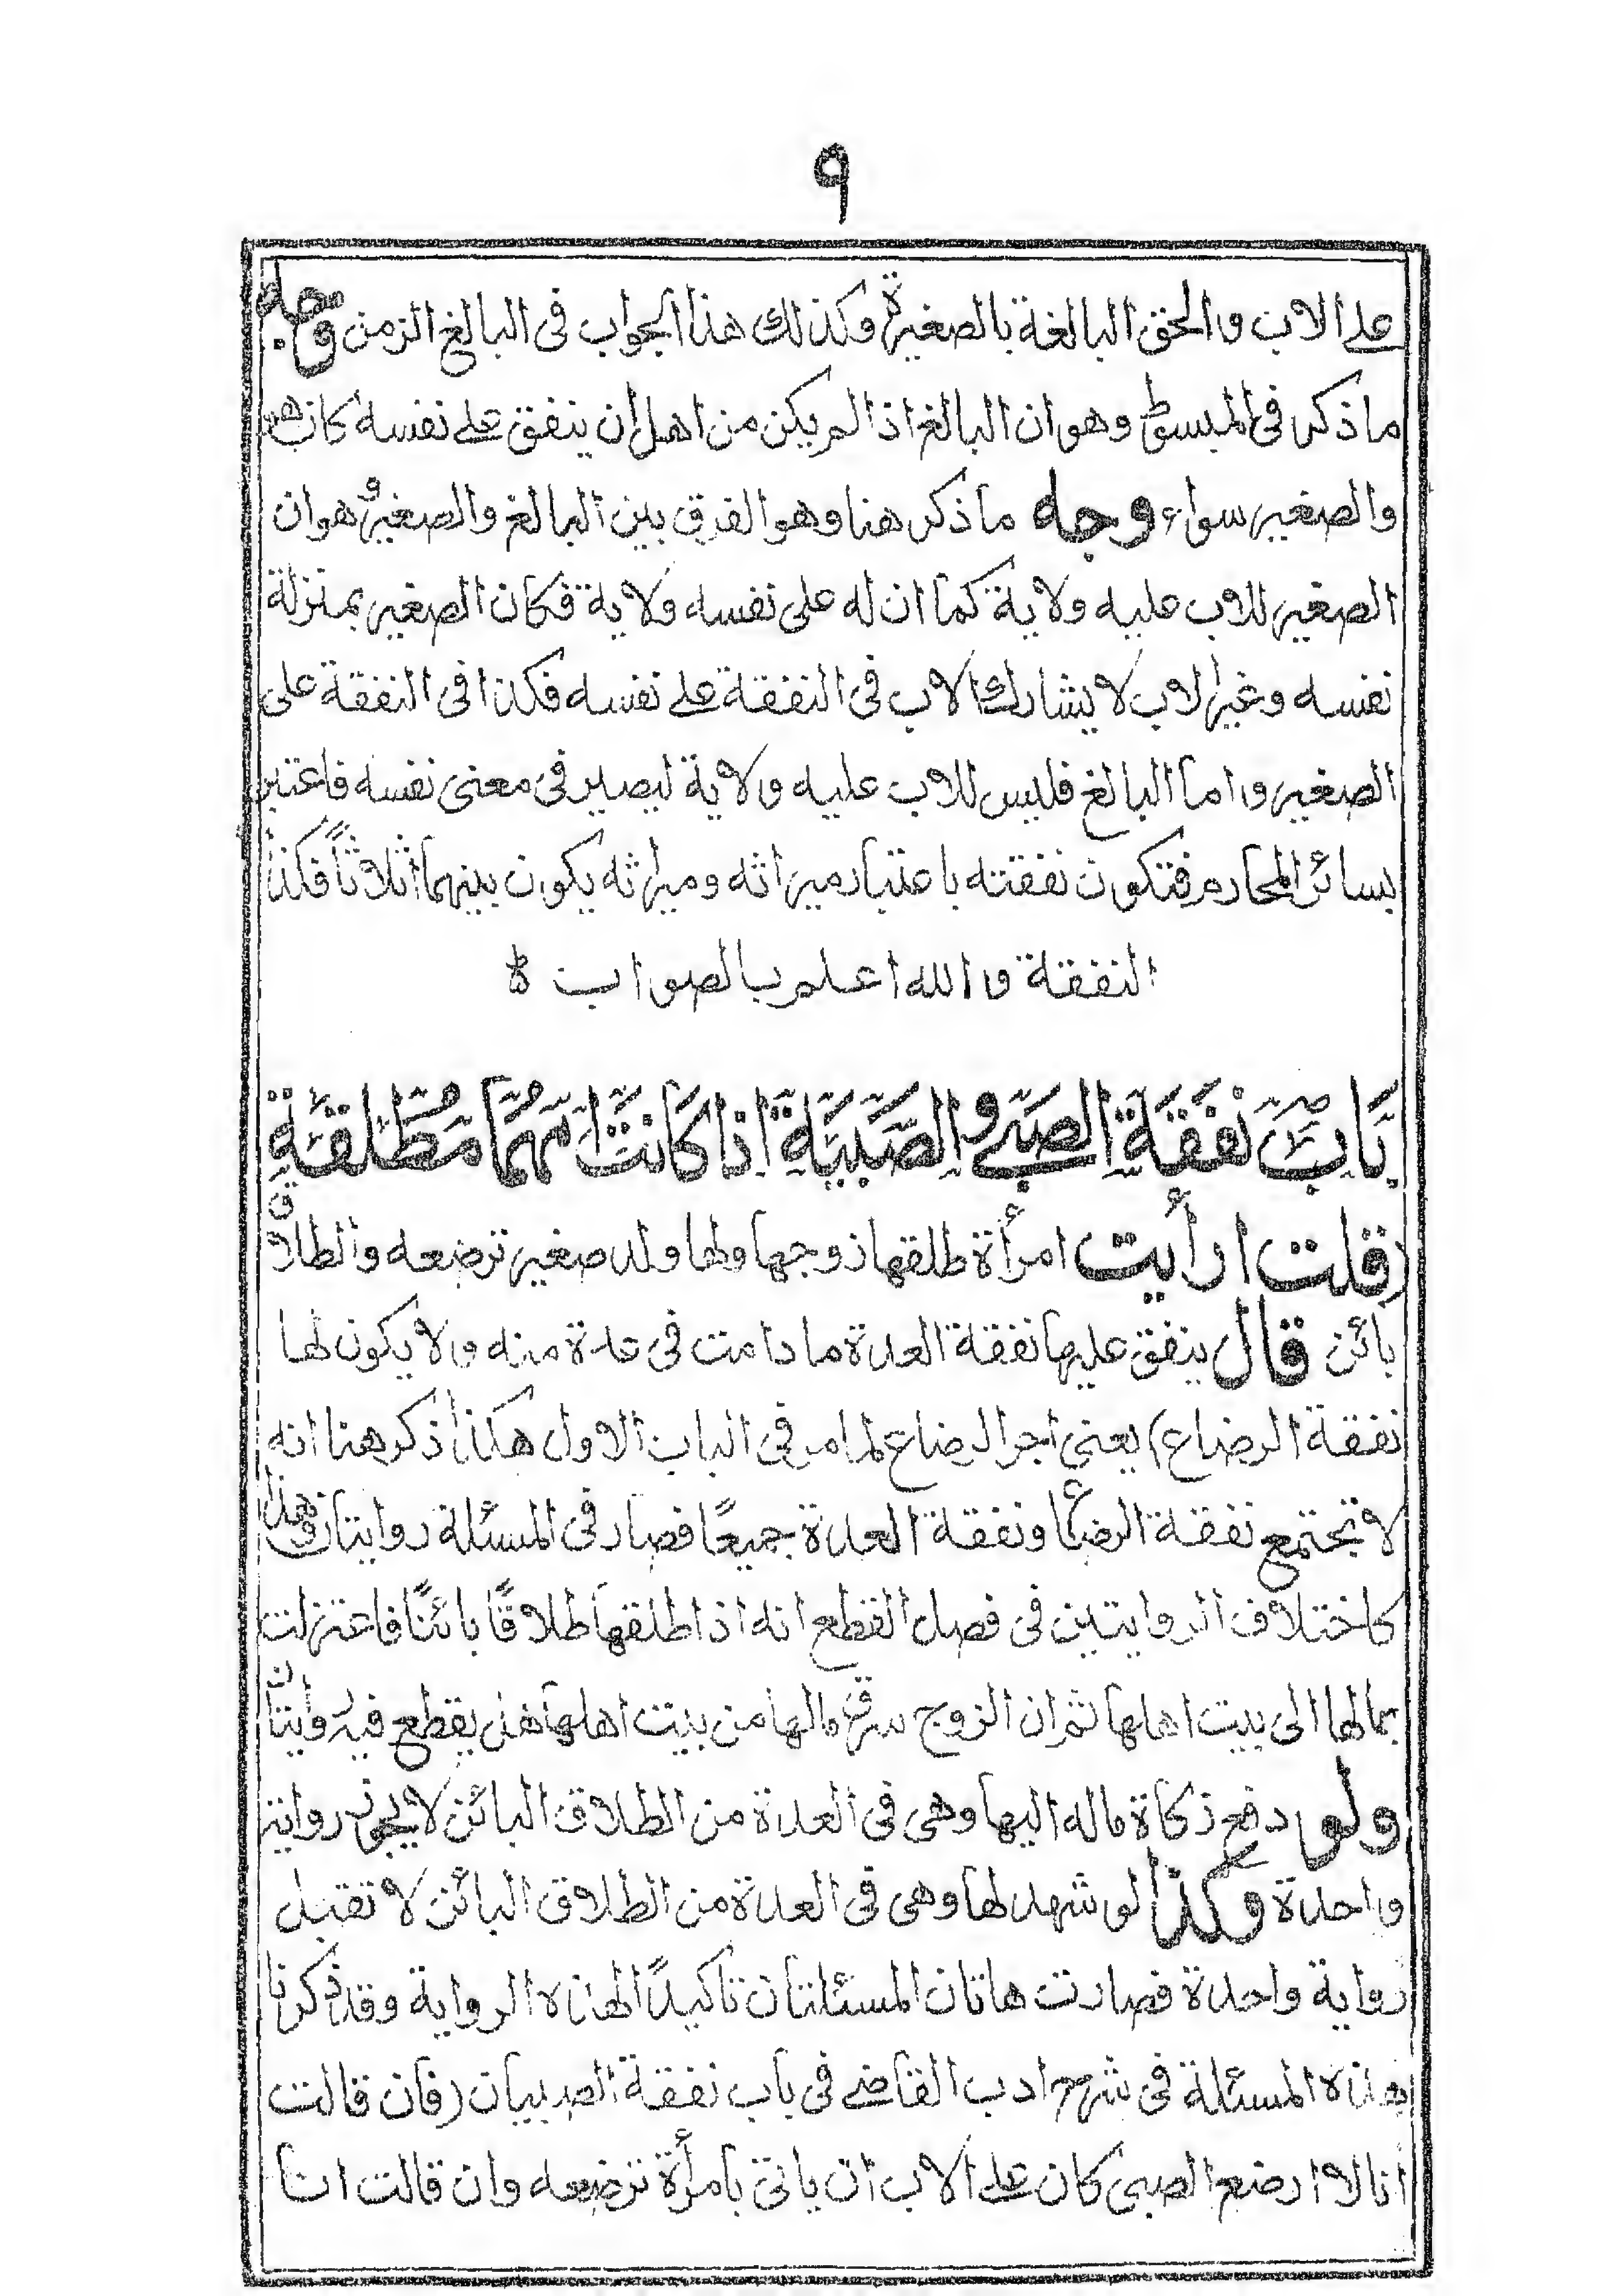 ٩
على الاب والحق البالغة بالصغيرة وكذلك هذا الجواب فى البالغ الزمن وجه
ما ذكر فى المبسوط وهو ان البالغ اذا لم يكن من اهل ان ينفق على نفسه كان هو
والصغير سواء وجه ما ذكر هنا وهو الفرق بين البالغ والصغير وهو ان
الصغير للاب عليه ولاية كما ان له على نفسه ولاية فكان الصغير بمنزلة
نفسه وغير الاب لا يشارك الاب فى النفقة على نفسه فكذا فى النفقة على
الصغير واما البالغ فليس للاب عليه ولاية ليصير فى معنى نفسه فاعتبر
بسائر المحارم فتكون نفقته باعتبار ميراثه وميراثه يكون بينهما اثلاثاً فكذا
النفقة والله اعلم بالصواب ه
بَابُ نَفَقَةِ الصَّبِىِّ وَالصَّبِيَّةِ اِذَا كَانَتْ اُمُّهُمَا مُطَلَّقَةً
(قلت ارأيت امرأة طلقها زوجها ولها ولد صغير ترضعه والطلاق
بائن قال ينفق عليها نفقة العدة ما دامت فى عدة منه ولا يكون لها
نفقة الرضاع) يعنى اجر الرضاع لما مر فى الباب الاول هكذا ذكر هنا انه
لا تجتمع نفقة الرضاع ونفقة العدة جميعًا فصار فى المسئلة روايتان وهذا
كاختلاف الروايتين فى فصل القطع انه اذا طلقها طلاقًا بائنًا فاعتزلت
بمالها الى بيت اهلها ثم ان الزوج سرق مالها من بيت اهلها هل يقطع فيه روايتان
ولو دفع زكاة ماله اليها وهى فى العدة من الطلاق البائن لا يجوز رواية
واحدة وكذا لو شهد لها وهى فى العدة من الطلاق البائن لا تقبل
رواية واحدة فصارت هاتان المسئلتان تاكيدًا لهذه الرواية وقد ذكرنا
هذه المسئلة فى شرح ادب القاضى فى باب نفقة الصبيان (فان قالت
انا لا ارضع الصبى كان على الاب ان ياتى بامرأة ترضعه وان قالت انا